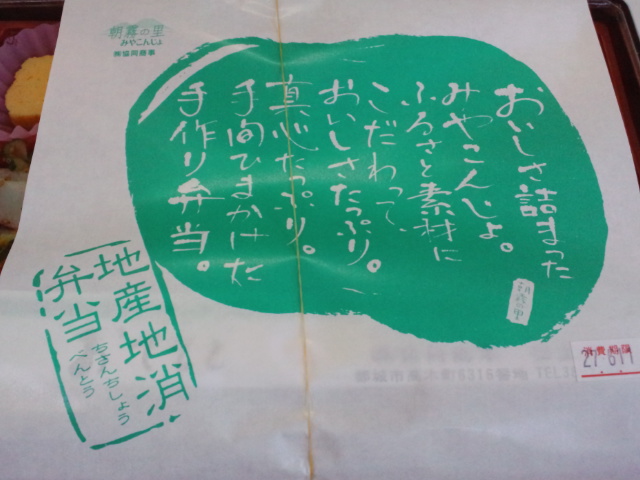 朝霧の里
みやこんじょ
㈱協同商事
おいしさ詰まった
みやこんじょ。
ふるさと素材に
こだわって、
おいしさたっぷり。
真心たっぷり。
手間ひまかけた
手作り弁当。
朝霧の里
地産地消
弁当
ちさんちしょう
べんとう
消費期限
27.6.11